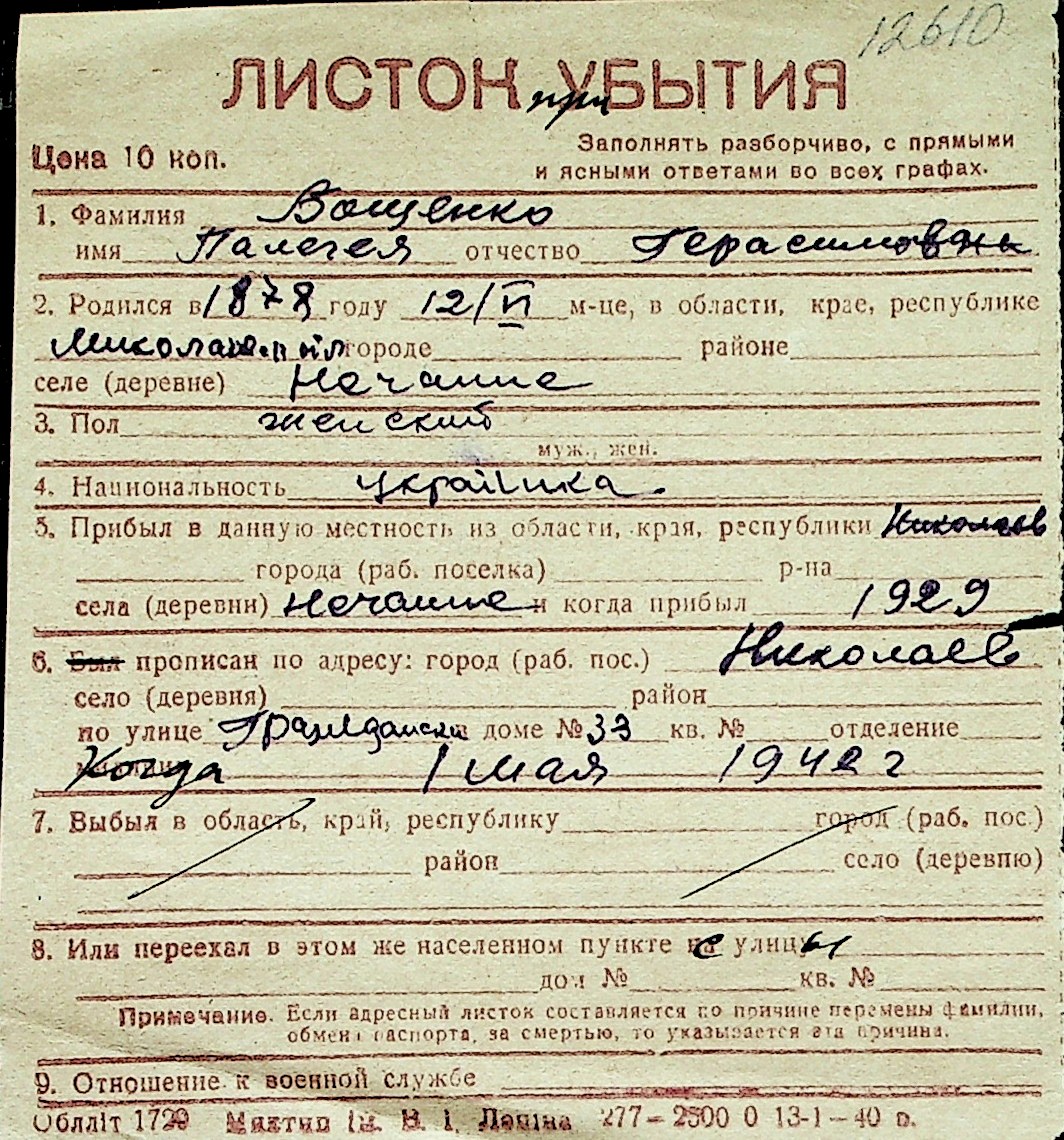 12610
ЛИСТОК при УБЫТИЯ
Цена 10 коп.
Заполнять разборчиво, с прямыми
и ясными ответами во всех графах.
1. Фамилия Ващенко
имя Палегея отчество Герасимовны
2. Родился в 1878 году 12/VI м-це, в области, крае, республике
городе районе
селе (деревне) Нечаине
3. Пол женский
муж., жен.
4. Национальность украинка.
5. Прибыл в данную местность из области, края, республики Николаев
города (раб. поселка) р-на
села (деревни) Нечаине и когда прибыл 1929
6. Был прописан по адресу: город (раб. пос.) Николаев
село (деревня) район
по улице Гражданская доме № 33 кв. № отделение
Когда 1 мая 1942 г
7. Выбыл в область, край, республику город (раб. пос.)
район село (деревню)
8. Или переехал в этом же населенном пункте с улицы
дом № кв. №
Примечание. Если адресный листок составляется по причине перемены фамилии,
обмена паспорта, за смертью, то указывается эта причина.
9. Отношение к военной службе
Обллiт 1729 Миктип iм. В. I. Ленiна 277–2500 0 13-1–40 р.